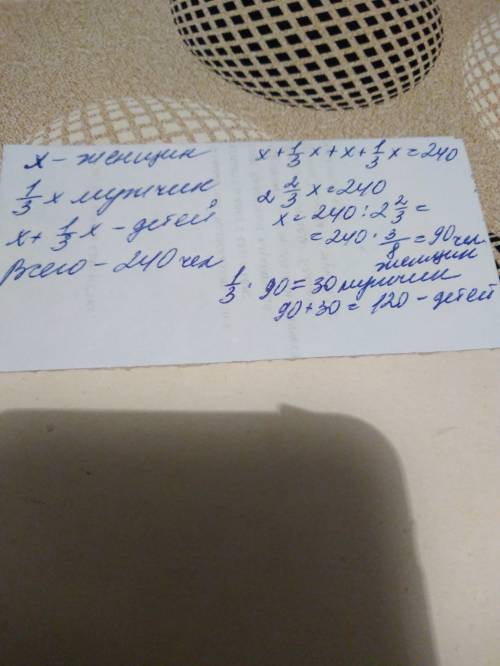 x - женщин
1/3 x мужчин
x + 1/3 x - детей
Всего - 240 чел
x + 1/3 x + x + 1/3 x = 240
2 2/3 x = 240
x = 240 : 2 2/3 =
= 240 · 3/8 = 90 чел
женщин
1/3 · 90 = 30 мужчин
90 + 30 = 120 - детей